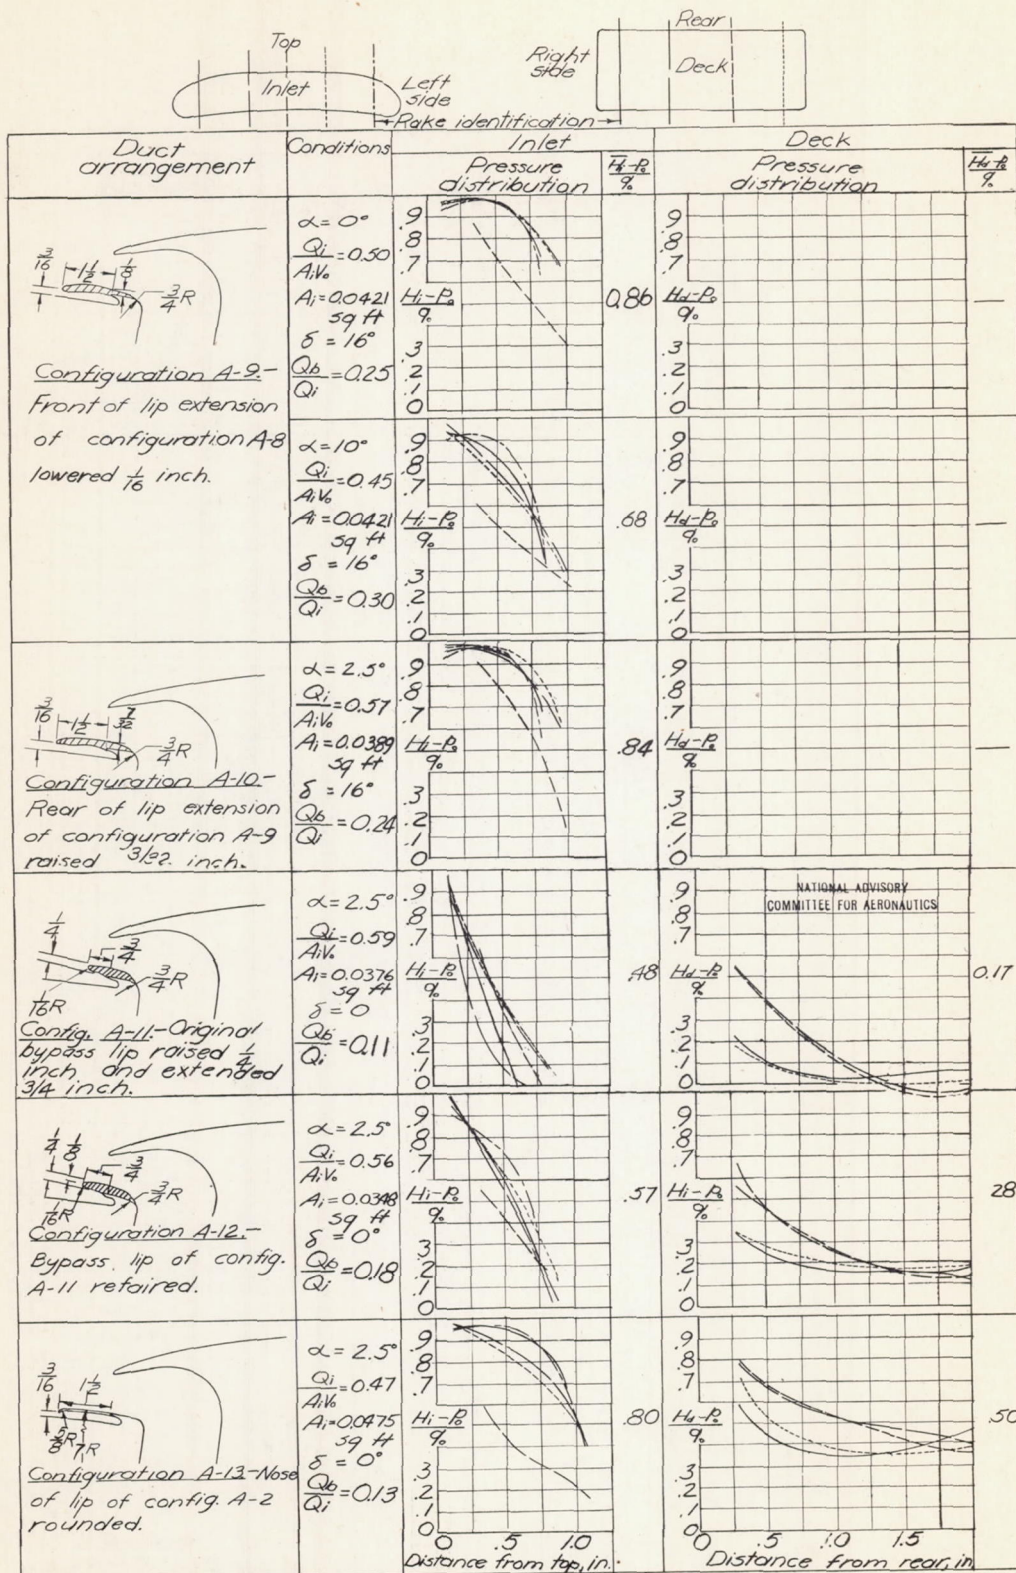 Top
Inlet
Left
side
Rear
Right
side
Deck
Rake identification
Duct
arrangement
Conditions
Inlet
Deck
Pressure
distribution
Hi-Po
qo
Pressure
distribution
Hd-Po
qo
3/16
1 1/2
1/8
3/4 R
Configuration A-9.-
Front of lip extension
of configuration A-8
lowered 1/16 inch.
α = 0°
Qi/AiVo = 0.50
Ai = 0.0421
sq ft
δ = 16°
Qb/Qi = 0.25
.9
.8
.7
Hi-Po
qo
.3
.2
.1
0
0.86
.9
.8
.7
Hd-Po
qo
.3
.2
.1
0
—
α = 10°
Qi/AiVo = 0.45
Ai = 0.0421
sq ft
δ = 16°
Qb/Qi = 0.30
.9
.8
.7
Hi-Po
qo
.3
.2
.1
0
.68
.9
.8
.7
Hd-Po
qo
.3
.2
.1
0
—
3/16
1 1/2
7/32
3/4 R
Configuration A-10.-
Rear of lip extension
of configuration A-9
raised 3/32 inch.
α = 2.5°
Qi/AiVo = 0.57
Ai = 0.0389
sq ft
δ = 16°
Qb/Qi = 0.24
.9
.8
.7
Hi-Po
qo
.3
.2
.1
0
.84
.9
.8
.7
Hd-Po
qo
.3
.2
.1
0
—
1/4
3/4
3/4 R
1/16 R
Config. A-11.-Original
bypass lip raised 1/4
inch and extended
3/4 inch.
α = 2.5°
Qi/AiVo = 0.59
Ai = 0.0376
sq ft
δ = 0
Qb/Qi = 0.11
.9
.8
.7
Hi-Po
qo
.3
.2
.1
0
.48
NATIONAL ADVISORY
COMMITTEE FOR AERONAUTICS
.9
.8
.7
Hd-Po
qo
.3
.2
.1
0
0.17
1/4
1/8
3/4
3/4 R
1/16 R
Configuration A-12.-
Bypass lip of config.
A-11 refaired.
α = 2.5°
Qi/AiVo = 0.56
Ai = 0.0348
sq ft
δ = 0°
Qb/Qi = 0.18
.9
.8
.7
Hi-Po
qo
.3
.2
.1
0
.57
.9
.8
.7
Hi-Po
qo
.3
.2
.1
0
28
3/16
1 1/2
7 R
Configuration A-13.-Nose
of lip of config. A-2
rounded.
α = 2.5°
Qi/AiVo = 0.47
Ai = 0.0475
sq ft
δ = 0°
Qb/Qi = 0.13
.9
.8
.7
Hi-Po
qo
.3
.2
.1
0
0 .5 1.0
Distance from top, in.
.80
.9
.8
.7
Hd-Po
qo
.3
.2
.1
0
0 .5 1.0 1.5
Distance from rear, in
.50